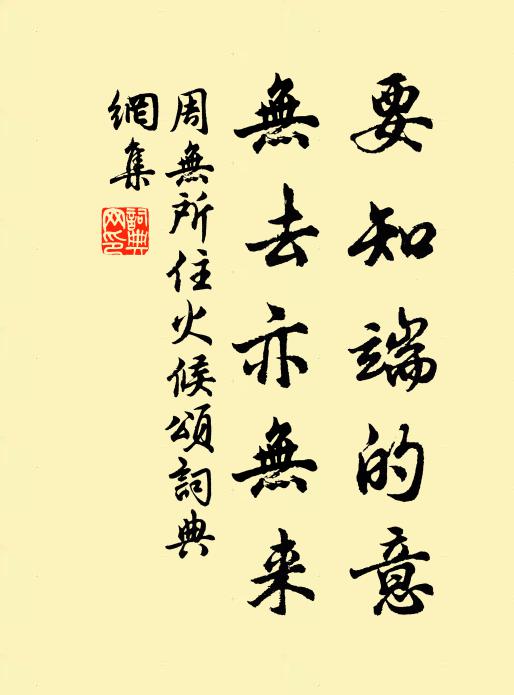 要知端的意
無去亦無来
周無所住火候頌詞典
網集
詞典
网印